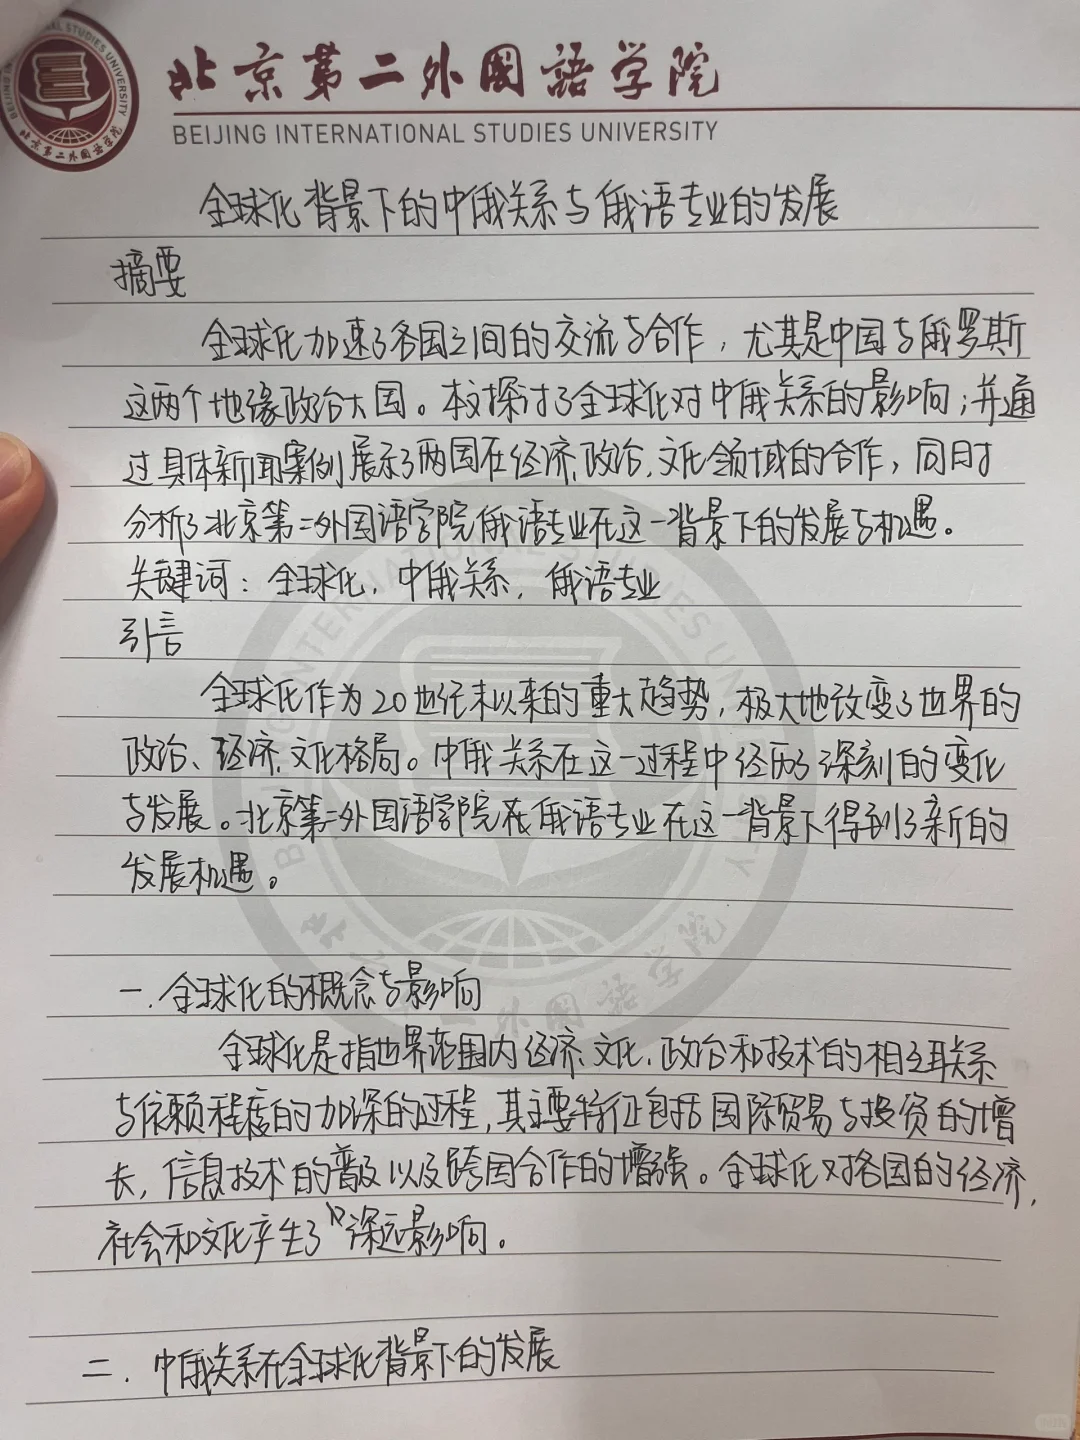 北京第二外国語学院
BEIJING INTERNATIONAL STUDIES UNIVERSITY
全球化背景下的中俄关系与俄语专业的发展
摘要
全球化加速了各国之间的交流与合作，尤其是中国与俄罗斯
这两个地缘政治大国。本文探讨了全球化对中俄关系的影响；并通
过具体新闻案例展示了两国在经济、政治、文化领域的合作，同时
分析了北京第二外国语学院俄语专业在这一背景下的发展与机遇。
关键词：全球化，中俄关系，俄语专业
引言
全球化作为20世纪末以来的重大趋势，极大地改变了世界的
政治、经济、文化格局。中俄关系在这一过程中经历了深刻的变化
与发展。北京第二外国语学院在俄语专业在这一背景下得到了新的
发展机遇。
一.全球化的概念与影响
全球化是指世界范围内经济、文化、政治和技术的相互联系
与依赖程度的加深的过程，其主要特征包括国际贸易与投资的增
长，信息技术的普及以及跨国合作的增强。全球化对各国的经济，
社会和文化产生了深远影响。
二.中俄关系在全球化背景下的发展